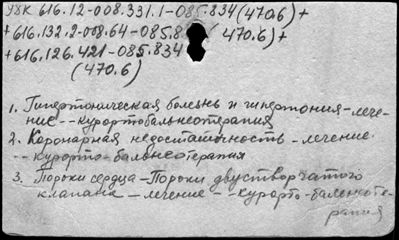 УДК 616.12-008.331.1-085.834(470.6)+
+616.132.2-008.64-085.8 (470.6)+
+616.126.421-085.834
(470.6)
1. Гипертоническая болезнь и гипертония-лече-
ние--курортобальнеотерапия
2. Коронарная недостаточность-лечение-
--курорто-бальнеотерапия
3. Пороки сердца-Пороки двустворчатого
клапана-лечение--курорто-бальнеоте-
рапия